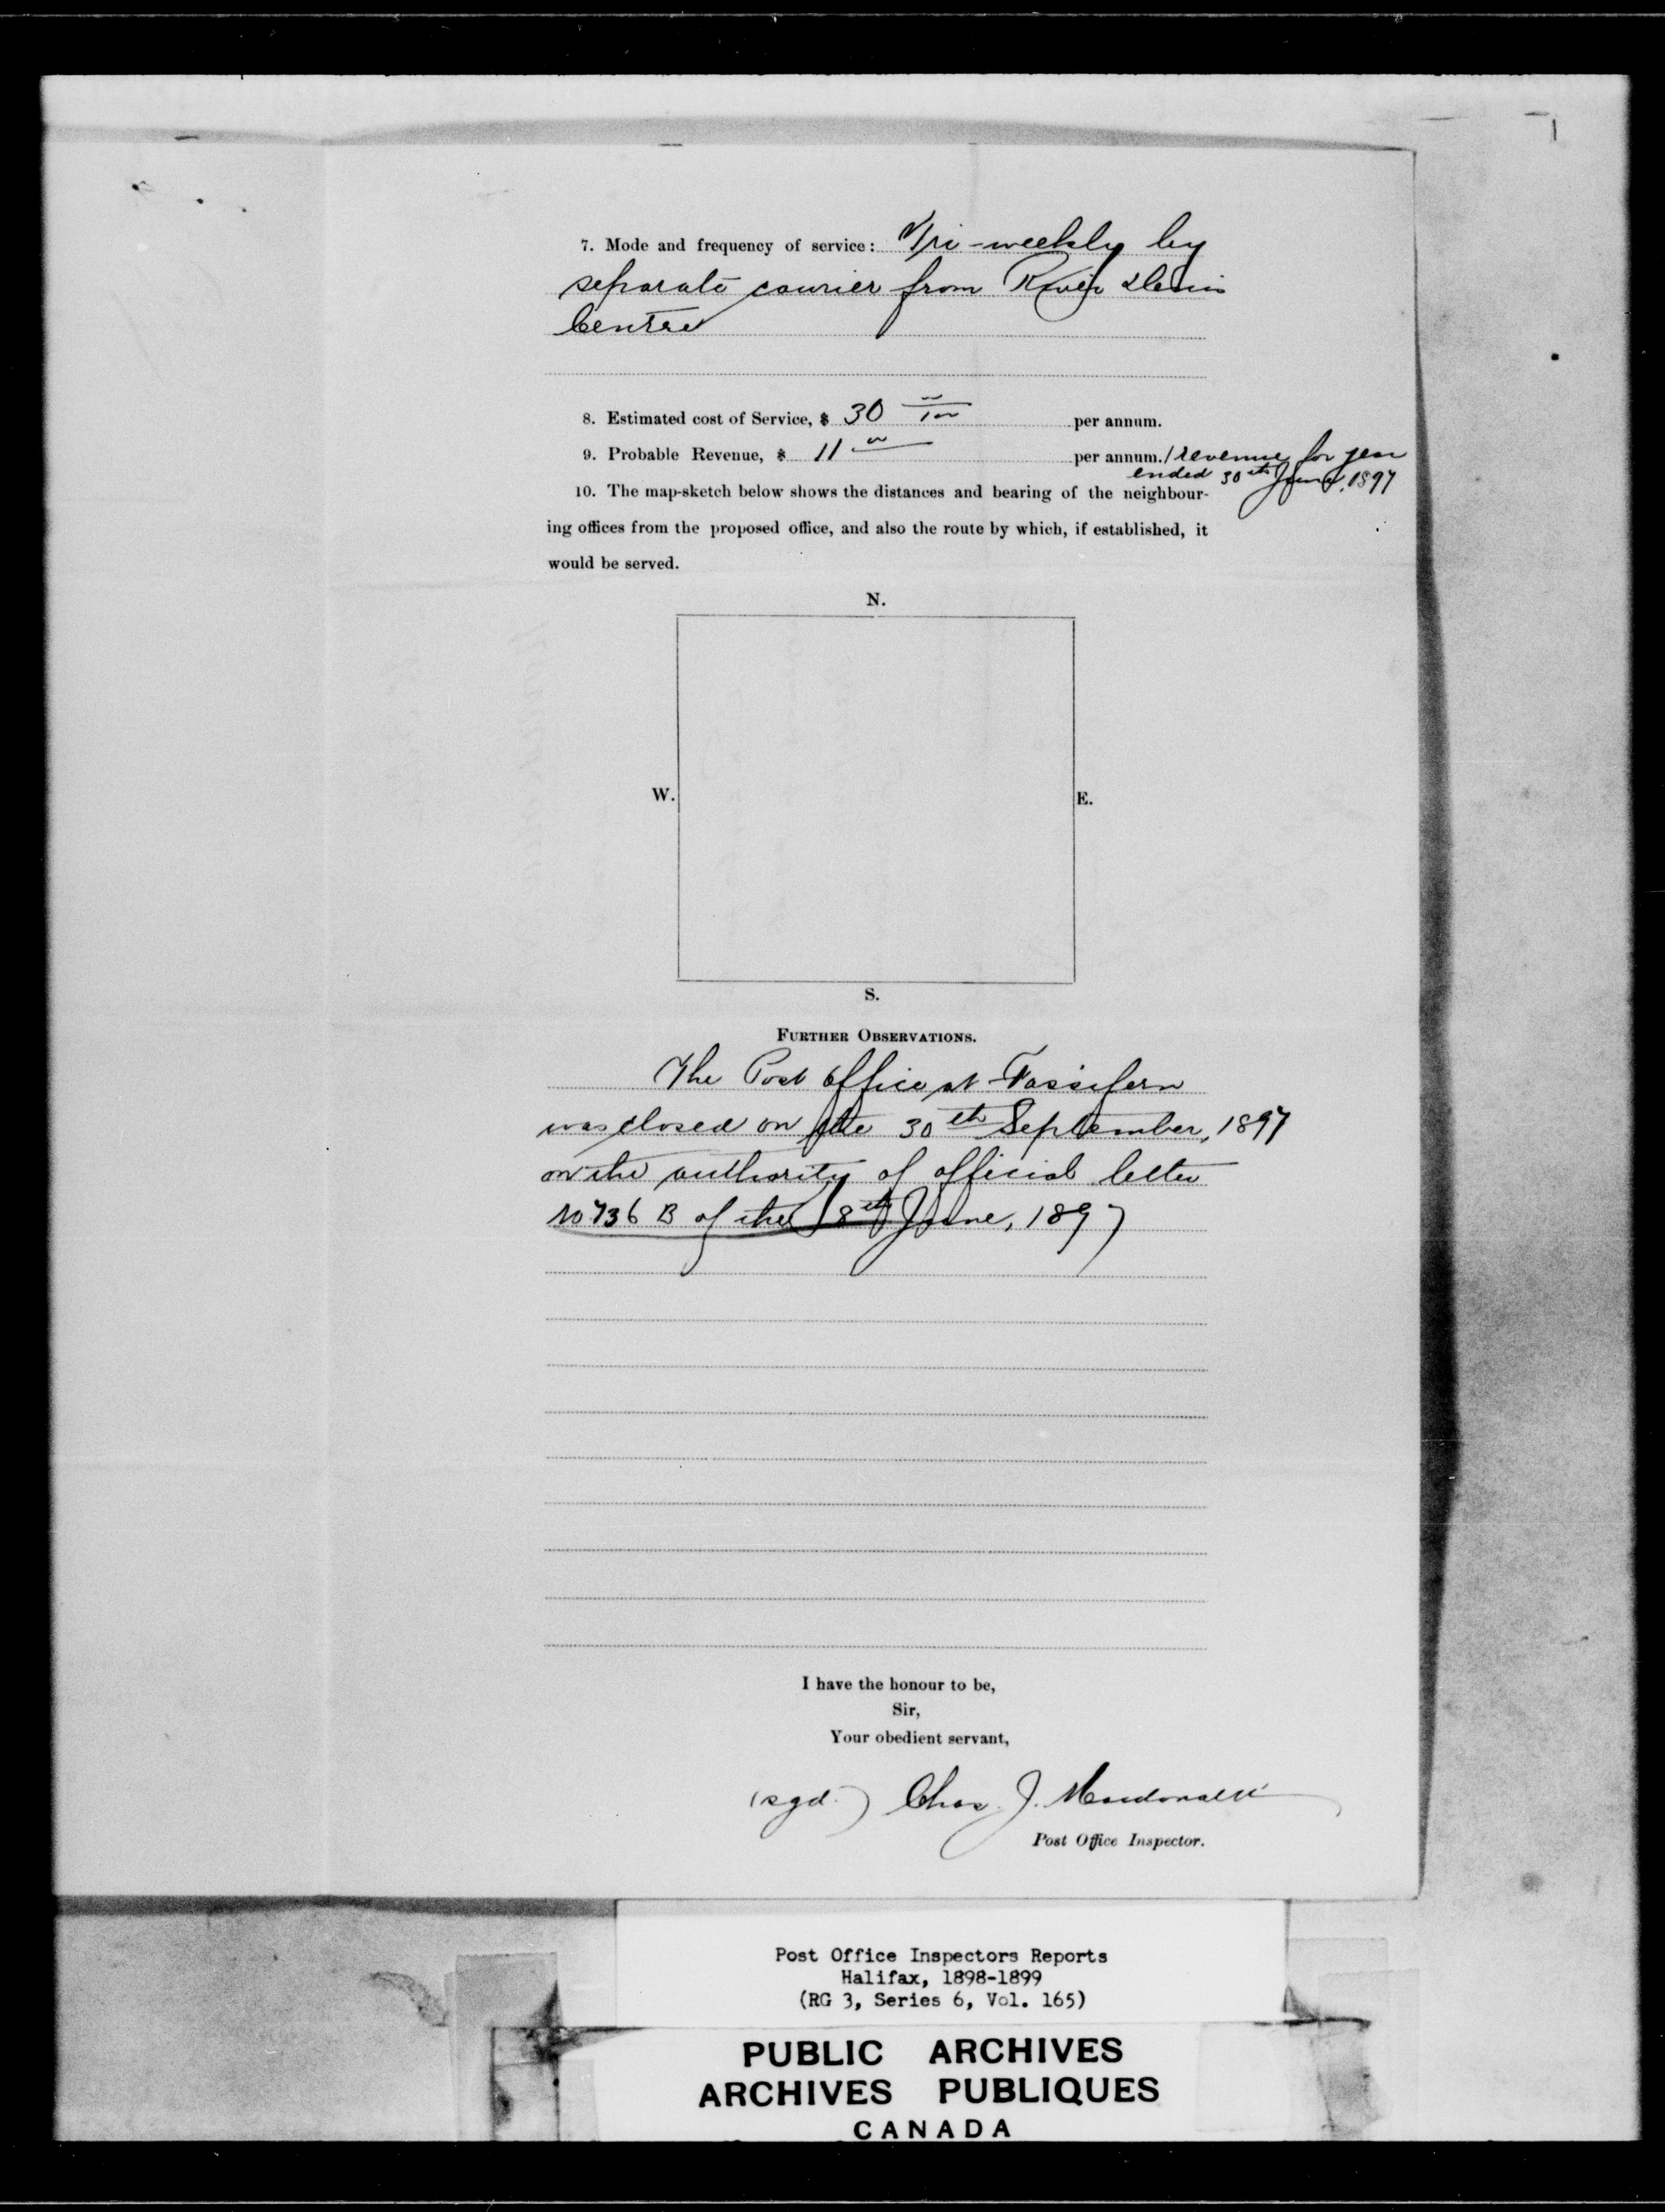 7. Mode and frequency of service: Tri-weekly by
separate courier from River Denis
Centre
8. Estimated cost of Service, $ 30 00/100 per annum.
9. Probable Revenue, $ 11 00 per annum. / revenue for year
ended 30th June, 1897
10. The map-sketch below shows the distances and bearing of the neighbour-
ing offices from the proposed office, and also the route by which, if established, it
would be served.
N.
W.
E.
S.
FURTHER OBSERVATIONS.
The Post Office at Fassifern
was closed on the 30th September, 1897
on the authority of official letter
No 736 B of the 18th June, 1897
I have the honour to be,
Sir,
Your obedient servant,
(sgd.) Chas. J. Macdonald
Post Office Inspector.
Post Office Inspectors Reports
Halifax, 1898-1899
(RG 3, Series 6, Vol. 165)
PUBLIC ARCHIVES
ARCHIVES PUBLIQUES
CANADA